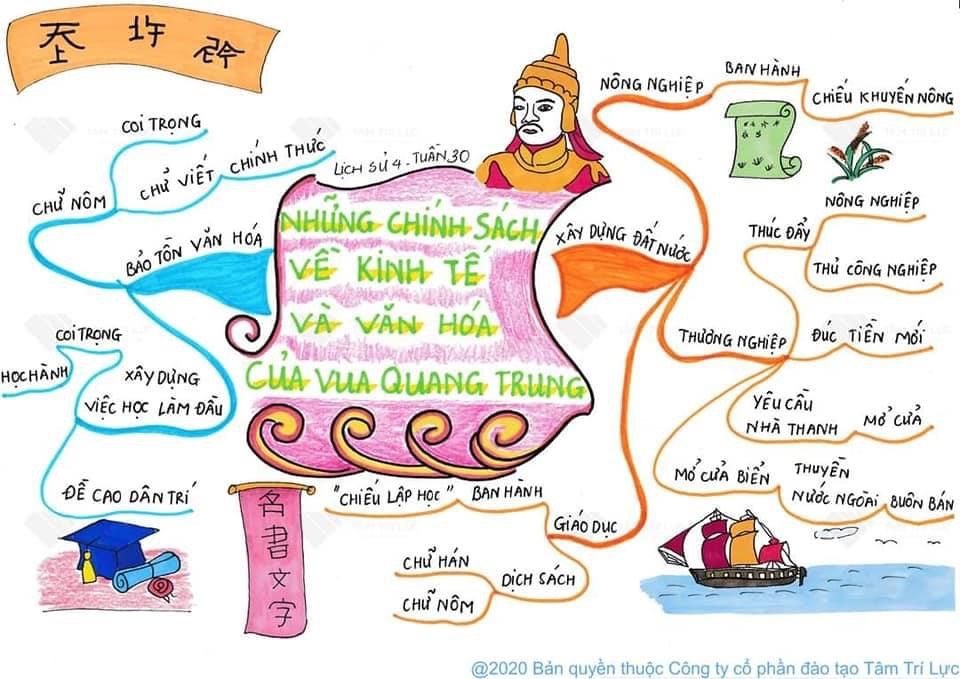 𡗶
LỊCH SỬ 4 - TUẦN 30
NHỮNG CHÍNH SÁCH
VỀ KINH TẾ
VÀ VĂN HÓA
CỦA VUA QUANG TRUNG
XÂY DỰNG ĐẤT NƯỚC
NÔNG NGHIỆP
BAN HÀNH
CHIẾU KHUYẾN NÔNG
THƯƠNG NGHIỆP
THÚC ĐẨY
NÔNG NGHIỆP
THỦ CÔNG NGHIỆP
ĐÚC TIỀN MỚI
YÊU CẦU
NHÀ THANH
MỞ CỬA
MỞ CỬA BIỂN
THUYỀN
NƯỚC NGOÀI
BUÔN BÁN
GIÁO DỤC
BAN HÀNH
"CHIẾU LẬP HỌC"
DỊCH SÁCH
CHỮ HÁN
CHỮ NÔM
BẢO TỒN VĂN HÓA
CHỮ NÔM
COI TRỌNG
CHỮ VIẾT
CHÍNH THỨC
XÂY DỰNG
VIỆC HỌC LÀM ĐẦU
COI TRỌNG
HỌC HÀNH
ĐỀ CAO DÂN TRÍ
名書文字
TÂM TRÍ LỰC
@2020 Bản quyền thuộc Công ty cổ phần đào tạo Tâm Trí Lực